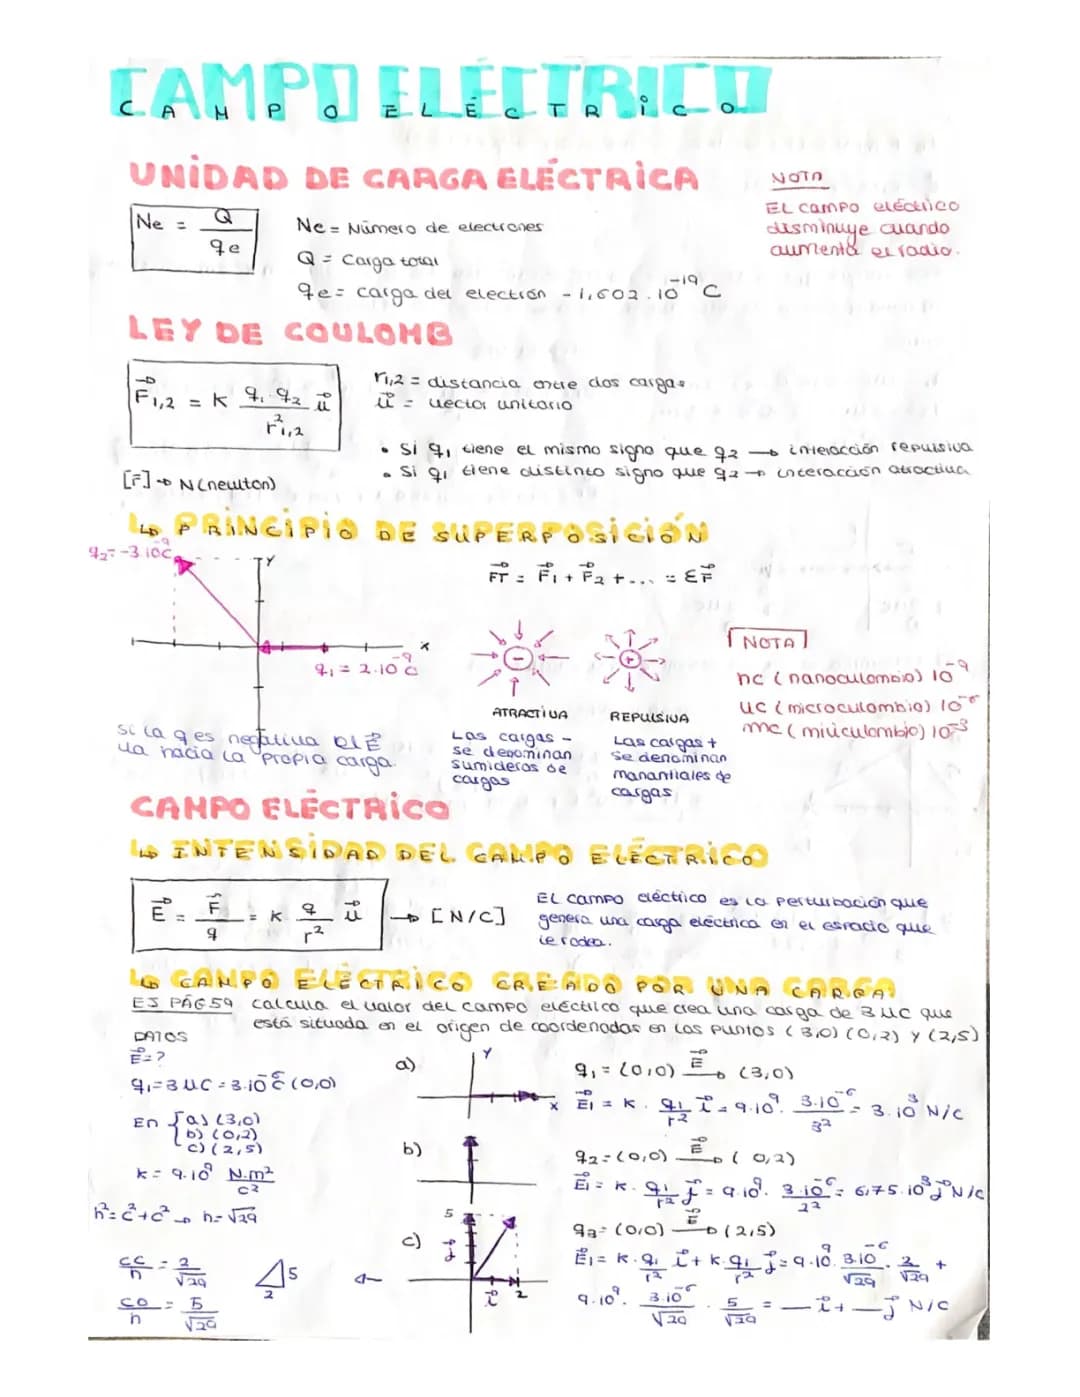 CAMPO ELÉCTRICO
CAMPO ELÉCTRICO
UNIDAD DE CARGA ELÉCTRICA
NOTA
El campo eléctrico
disminuye cuando
aumenta el radio.
Ne = Q / qe
Ne = Número de electrones
Q = Carga total
qe = carga del electrón - 1,602 . 10⁻¹⁹ C
LEY DE COULOMB
F⃗1,2 = K q1 . q2 / r²1,2 u⃗
r1,2 = distancia entre dos cargas
u⃗ = vector unitario
• Si q1 tiene el mismo signo que q2 → interacción repulsiva
• Si q1 tiene distinto signo que q2 → interacción atractiva
[F] → N (newton)
↳ PRINCIPIO DE SUPERPOSICIÓN
q2 = -3.10⁻⁹C
Y
F⃗T = F⃗1 + F⃗2 + ... = ΣF⃗
x
q1 = 2.10⁻⁹ C
- +
ATRACTIVA
REPULSIVA
Las cargas -
se denominan
sumideros de
cargas
Las cargas +
se denominan
manantiales de
cargas
NOTA
nc (nanoculombio) 10⁻⁹
uc (microculombio) 10⁻⁶
mc (miliculombio) 10⁻³
si la q es negativa el E⃗
va hacia la propia carga.
CAMPO ELÉCTRICO
↳ INTENSIDAD DEL CAMPO ELÉCTRICO
E⃗ = F⃗ / q = K . q / r² u⃗ → [N/C]
El campo eléctrico es la perturbación que
genera una carga eléctrica en el espacio que
le rodea.
↳ CAMPO ELÉCTRICO CREADO POR UNA CARGA
EJ PÁG 59 calcula el valor del campo eléctrico que crea una carga de 3 uc que
está situada en el origen de coordenadas en los puntos (3,0) (0,2) y (2,5)
DATOS
E⃗ = ?
q1 = 3 uc = 3.10⁻⁶ C (0,0)
En { a) (3,0)
b) (0,2)
c) (2,5)
K = 9.10⁹ N.m² / c²
h² = c² + c² → h = √29
cc / h = 2 / √29
co / h = 5 / √29
5
2
a)
Y
x
q1 = (0,0) E⃗→ (3,0)
E⃗1 = K . q1 / r² i⃗ = 9.10⁹ . 3.10⁻⁶ / 3² = 3.10³ N/C
b)
q2 = (0,0) E⃗→ (0,2)
E⃗1 = K . q1 / r² j⃗ = 9.10⁹ . 3.10⁻⁶ / 2² = 6,75.10³ j⃗ N/C
c)
5
j⃗
i⃗ 2
q3 = (0,0) E⃗→ (2,5)
E⃗1 = K . q1 / r² i⃗ + K . q1 / r² j⃗ = 9.10⁹ . 3.10⁻⁶ / √29 . 2 / √29 +
9.10⁹ . 3.10⁻⁶ / √29 . 5 / √29 = — i⃗ + — j⃗ N/C